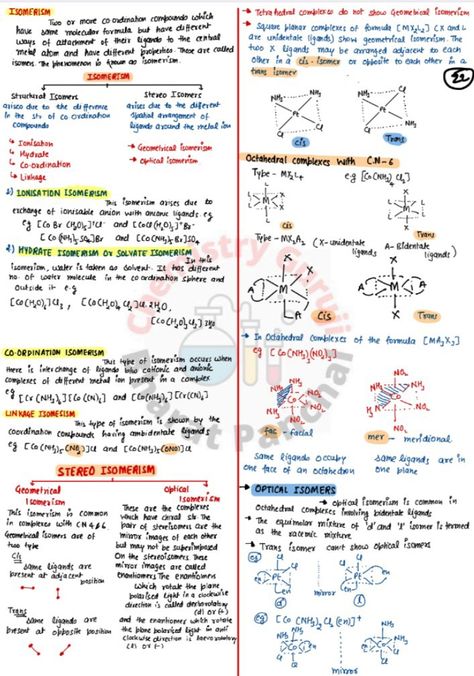 ISOMERISM
Two or more co-ordination compounds which
have same molecular formula but have different
ways of attachment of their ligands to the central
metal atom and have different properties. These are called
isomers. The phenomenon is known as isomerism.
ISOMERISM
Structural Isomers
arises due to the difference
in the str of co ordination
compounds
→ Ionisation
→ Hydrate
→ Co-ordination
→ Linkage
Stereo Isomers
arises due to the different
spatial arrangement of
ligands around the metal ion
→ Geometrical isomerism
→ optical isomerism
1) IONISATION ISOMERISM
This isomerism arises due to
exchange of ionisable anion with anionic ligands eg
2) HYDRATE ISOMERISM or SOLVATE ISOMERISM
In this
isomerism, water is taken as solvent. It has different
no of water molecule in the co-ordination sphere and
outside it eg
[Co(H2O)6]Cl3,
CO-ORDINATION ISOMERISM
This type of isomerism occurs when
there is interchange of ligands b/w cationic and anionic
complexes of different metal ion present in a complex
eg [Cr(NH3)6][Co(CN)6] and [Co(NH3)6][Cr(CN)6]
LINKAGE ISOMERISM
This type of isomerism is shown by the
coordination compounds having ambidentate ligands
eg [Co(NH3)5NO2]Cl and [Co(NH3)5ONO]Cl
STEREO ISOMERISM
Geometrical
Isomerism
This isomerism is common
in complexes with CN 4 & 6
Geometrical isomers are of
two type
Cis
Same ligands are
present at adjacent
position
Trans
Same ligands are
present at opposite position
Optical
isomerism
These are the complexes
which have chiral str. The
pair of stereoisomers are the
mirror images of each other
but may not be superimposed
On the stereoisomers. These
mirror images are called
enantiomers. The enantiomers
which rotate the plane
polarised light in a clockwise
direction is called dextrorotatory
(d) or (+)
and the enantiomer which rotate
the plane polarised light in anti
clockwise direction is laevorotatory
(l) or (-)
→ Tetrahedral complexes do not show Geometrical isomerism
→ Square planar complexes of formula [MX2L2] (X and L
are unidentate ligands) show geometrical isomerism. The
two X ligands may be arranged adjacent to each
other in a cis-isomer or opposite to each other in a
trans isomer
22
NH3 Cl
Pt
NH3 Cl
cis
NH3 Cl
Pt
Cl NH3
Trans
Octahedral complexes with C.N-6
Type - MX2L4 eg [Co(NH3)4Cl2]
cis
Trans
Type - MX2A2 (X-unidentate ligands A-Bidentate ligands)
Cis
Trans
→ In Octahedral complexes of the formula [MA3X3]
eg [Co(NH3)3(NO2)3]
fac - facial
mer - meridional
Same ligands occupy
one face of an octahedron
Same ligands are in
one plane
→ OPTICAL ISOMERS
→ optical isomerism is common in
Octahedral complexes involving bidentate ligands
→ The equimolar mixture of 'd' and 'l' isomer is termed
as the racemic mixture.
→ Trans isomer can't show optical isomers
eg
mirror
eg [Co(NH3)2Cl2(en)]+
mirror
Chemistry Guruji